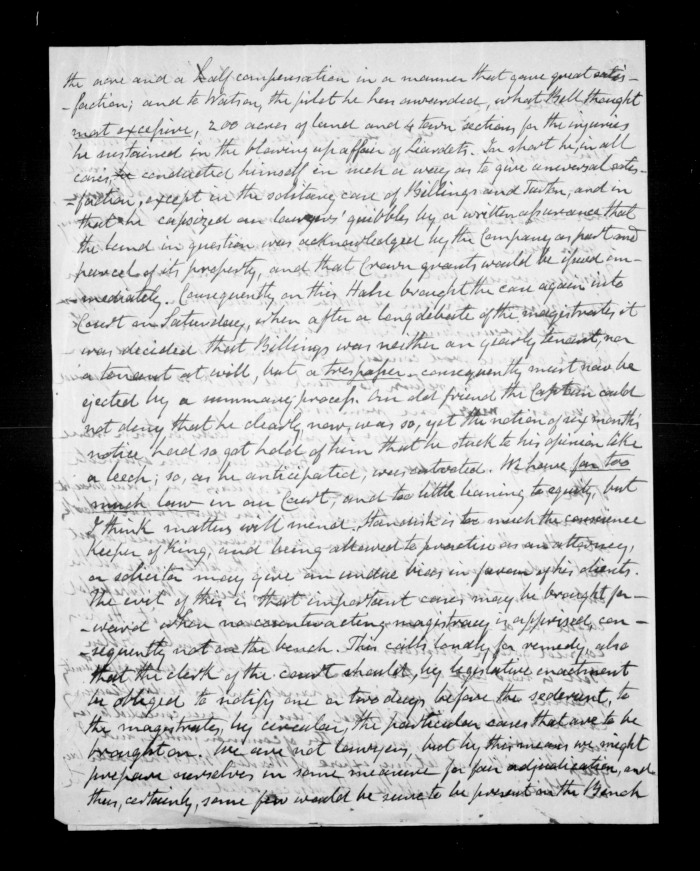 the acre and a half compensation in a manner that gave great satis-
-faction; and to Watson, the pilot he has awarded, what Bell thought
most excessive, 200 acres of land and 4 town sections for the injuries
he sustained in the blowing up affair of Liardets. In short he, in all
cases, conducted himself in such a way, as to give universal satis-
-faction, except in the solitary case of Billings and , and in
that he capsized our lawyers' quibbles by a written assurance that
the land in question was acknowledged by the Company, as part and
parcel of its property, and that Crown grants would be issued im-
-mediately. Consequently on this Halse brought the case again into
Court on Saturday, when after a long debate of the magistrates, it
was decided that Billings was neither an yearly tenant, nor
a tenant at will, but a trespasser - consequently must now be
ejected by a summary process. Our old friend the Captain could
not deny that he clearly now was so, yet the notion of six months
notice had so got hold of him that he stuck to his opinion like
a leech; so, as he anticipated, was outvoted. We have far too
much law in our Court, and too little leaning to equity, but
I think matters will mend. Standish is too much the conscience
keeper of King, and being allowed to practise as an attorney,
or solicitor may give an undue bias in favour of his clients.
The evil of this is that important cases may be brought for-
-ward when no counteracting magistracy is apprised, con-
-sequently not on the bench. This calls loudly for remedy, also
that the clerk of the court should, by legislative enactment
be obliged to notify one or two days before the sederunt, to
the magistrates, by circular, the particular cases that are to be
brought on. We are not lawyers, but by this means we might
prepare ourselves in some measure for fair adjudication, and
then, certainly, some few would be sure to be present on the Bench